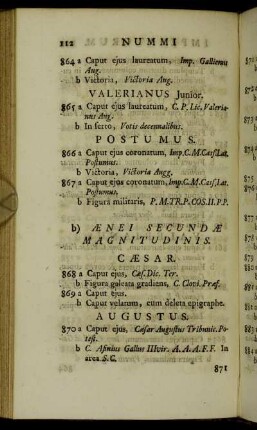 112 NUMMI
864 a Caput ejus laureatum, Imp. Gallienus
Aug.
b Victoria, Victoria Aug.
VALERIANUS Junior.
865 a Caput ejus laureatum, C. P. Lic. Valeria-
nus Aug.
b In ferto, Votis decennalibus.
POSTUMUS.
866 a Caput ejus coronatum, Imp. C. M. Cass. Lat.
Postumus.
b Victoria, Victoria Augg.
867 a Caput ejus coronatum, Imp. C. M. Cass. Lat.
Postumus.
b Figura militaris, P. M. TR. P. COS. II. P.P.
b) ÆNEI SECUNDÆ
MAGNITUDINIS.
CÆSAR.
868 a Caput ejus, Cæs. Dic. Ter.
b Figura galeata gradiens, C. Clovi. Præf.
869 a Caput ejus.
b Caput velatum, cum deleta epigraphe.
AUGUSTUS.
870 a Caput ejus, Cæsar Augustus Tribunic. Po-
test.
b C. Asinius Gallus IIIvir. A. A. A. F. F. In
area S. C.
871